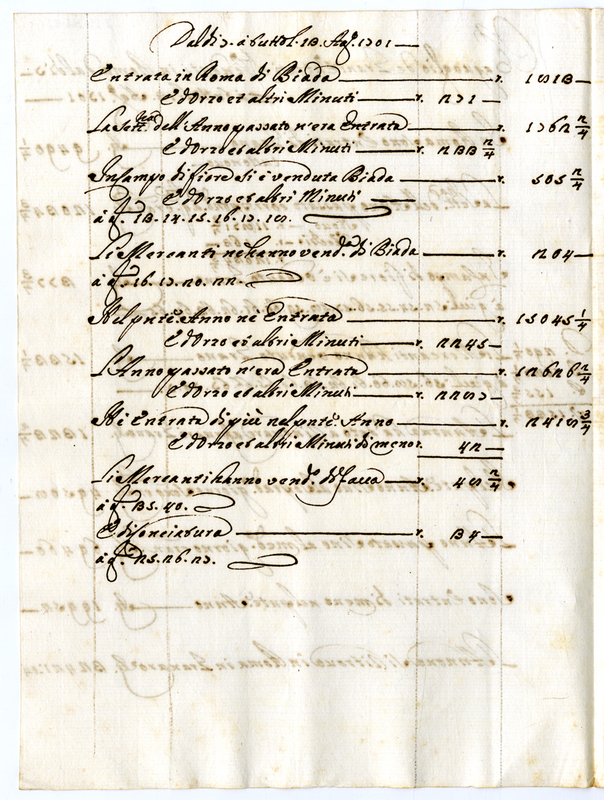 Dal di 7. à tutto l. 13. Ag.o 1701
Entrata in Roma di Biada r. 1813
E d'Orzo et altri Minuti r. 271
La Sett.na dell'Anno passato n'era Entrata r. 1762 2/4
E d'Orzo et altri Minuti r. 233 2/4
In Campo di fiore si è venduta Biada r. 505 2/4
E d'Orzo et altri Minuti
à g. 13. 14. 15. 16. 17. 18.
Li Mercanti ne hanno vend.a di Biada r. 204
à g. 16. 17. 20. 22.
Nel pnte. Anno nè Entrata r. 15045 1/4
E d'Orzo et altri Minuti r. 2245
L'Anno passato n'era Entrata r. 12626 2/4
E d'Orzo et altri Minuti r. 2287
Nè Entrata di più nel pnte. Anno r. 2418 3/4
E d'Orzo et altri Minuti di meno r. 42
Li Mercanti hanno vend. di faua r. 48 2/4
à g. 35. 40.
E di Conciatura r. 34
à g. 25. 26. 27.